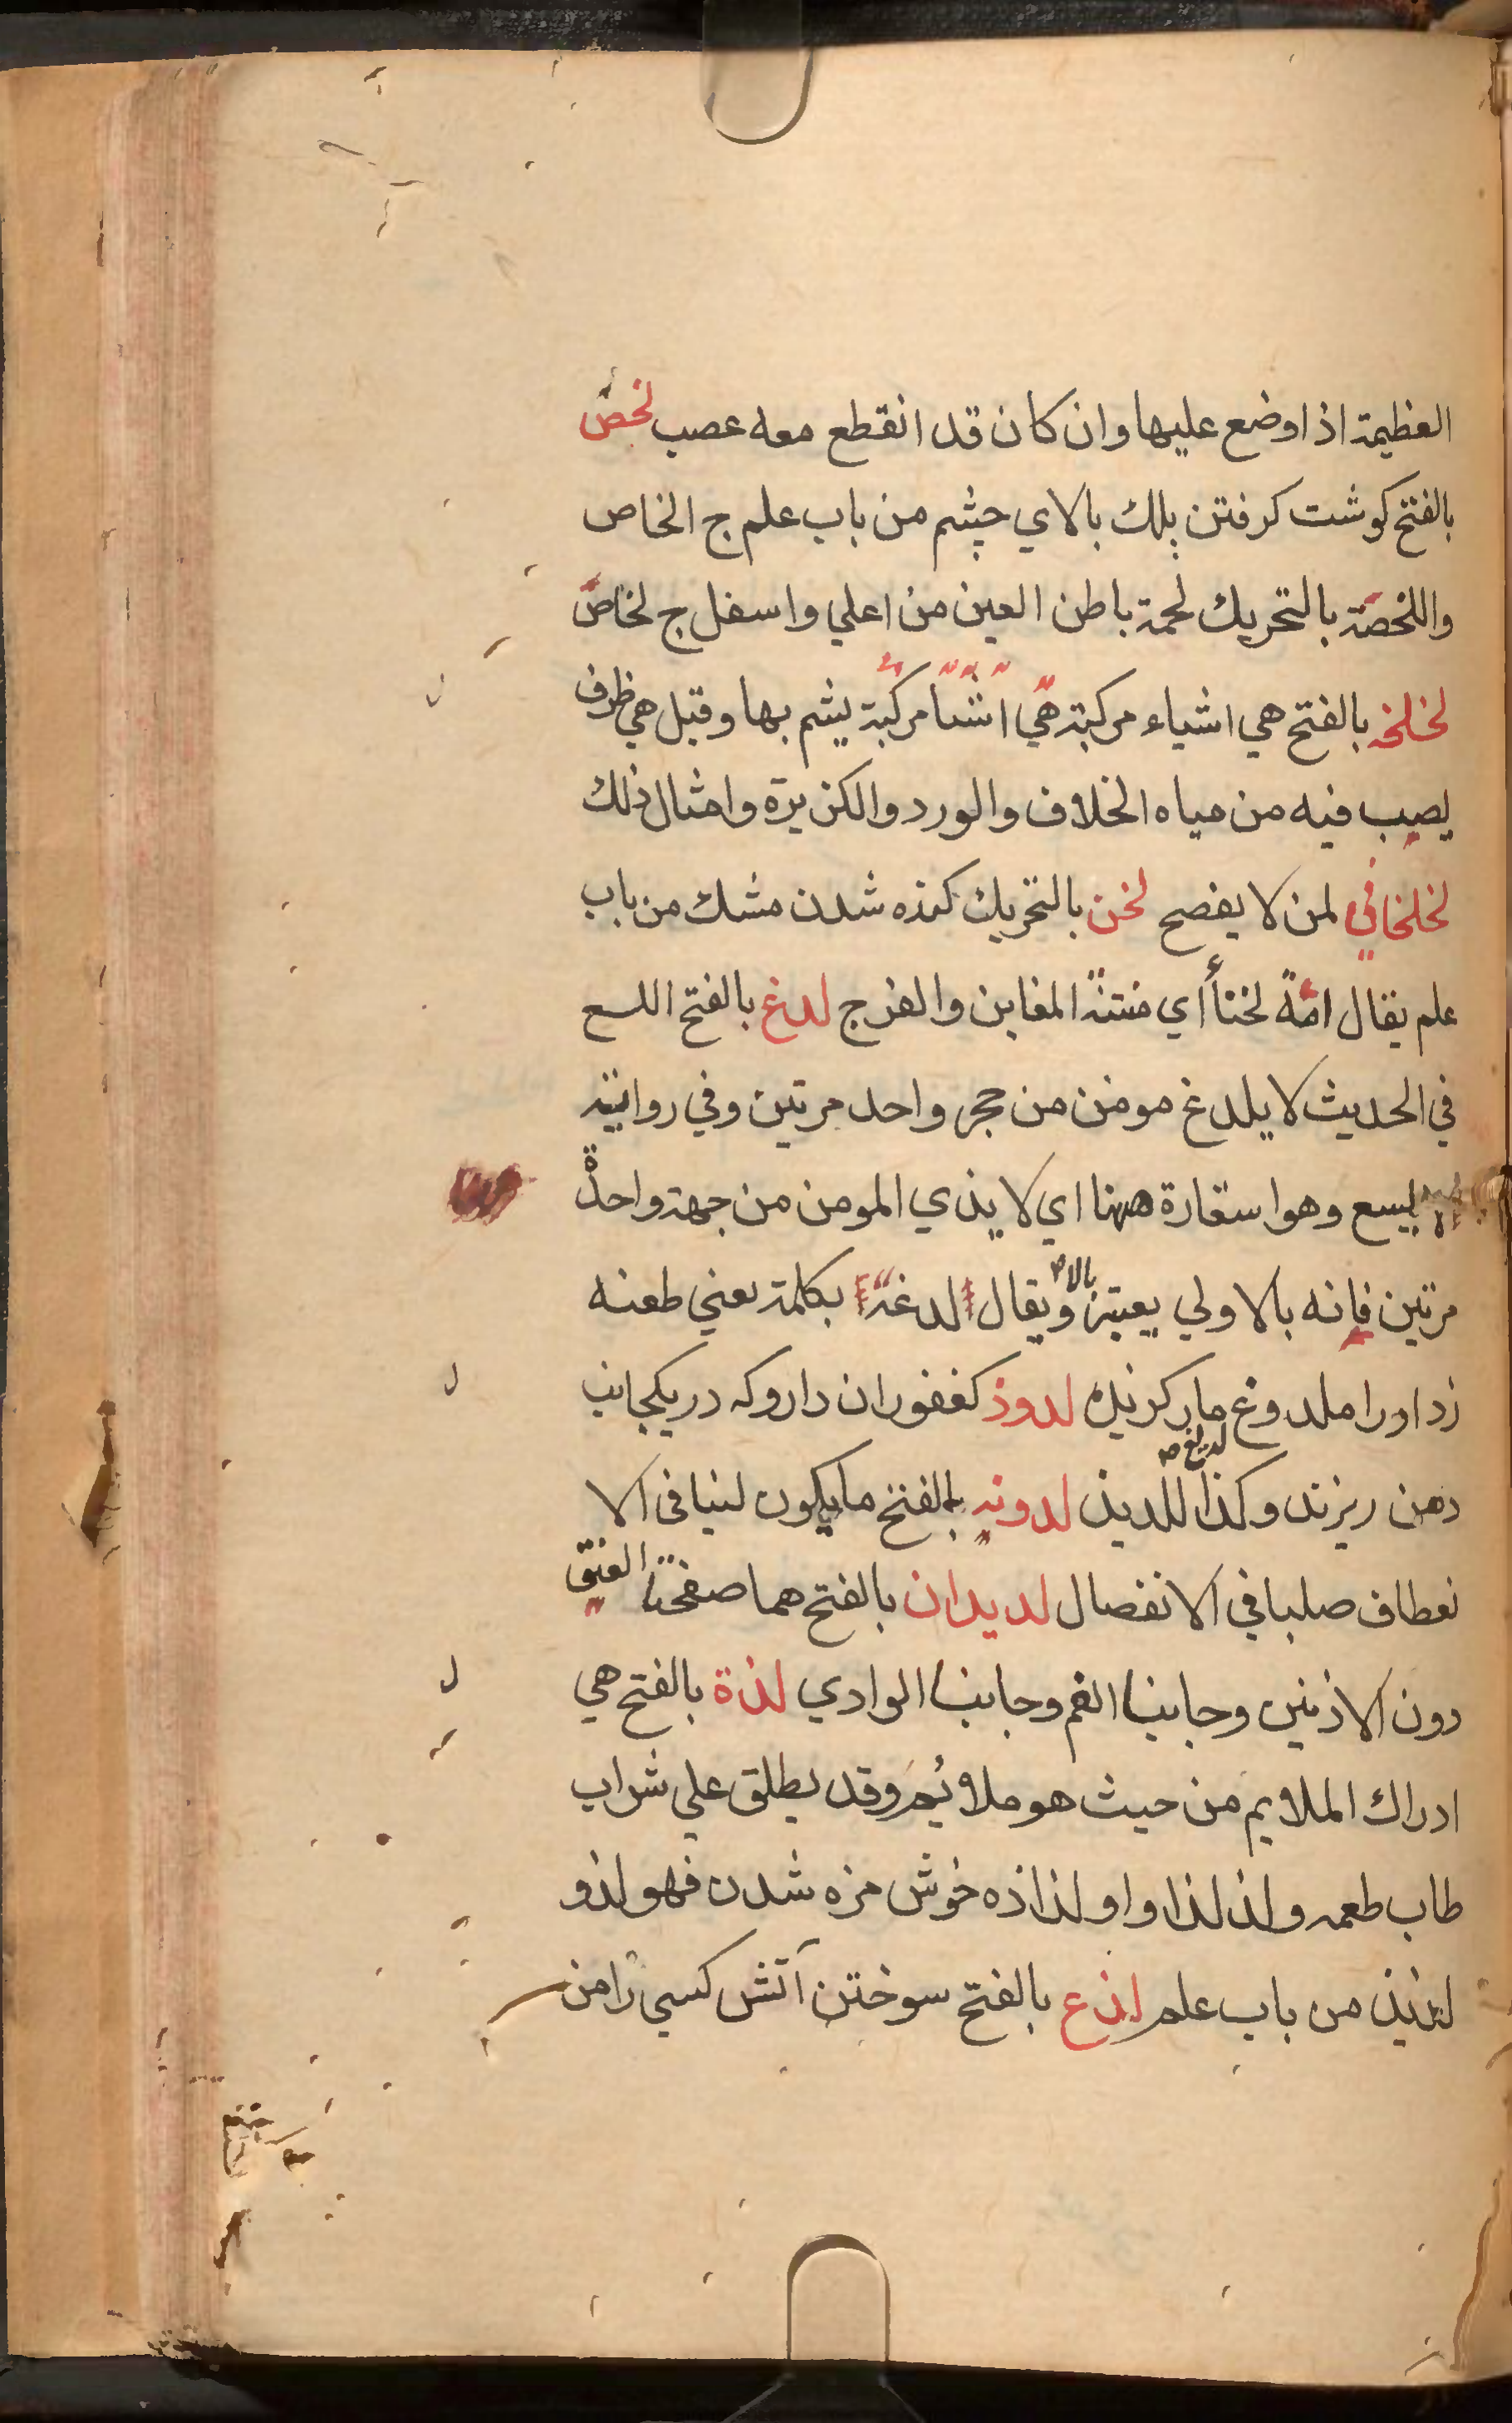 العظيمة اذا وضع عليها وان كان قد انقطع معه عصب لخص
بالفتح كوشت كرفتن پلك بالاي چشم من باب علم ج الخاص
واللخصة بالتحريك لحمة باطن العين من اعلي واسفل ج لخاص
لخلخه بالفتح هي اشياء مركبة هي اشيا مركبة يشم بها وقيل هي ظرف
يصب فيه من مياه الخلاف والورد والكزبرة وامثال ذلك
لخلخاني لمن لا يفصح لخن بالتحريك كنده شدن مشك من باب
علم يقال امة لخنأ أي منتنة المغابن والفرج لدغ بالفتح اللسع
في الحديث لا يلدغ مومن من حجر واحد مرتين وفي رواية
لا يسع وهو استعارة ههنا اي لا يذي المومن من جهة واحدة
مرتين فإنه بالاولي يعتبر ويقال لدغة بكلمة يعني طعنه
زد اورا ملدوغ مار كزيده لدوذ كغفور ان داروكه در يكجانب
دهن ريزند وكذا للديذ لدونه بالفتح ما يكون لينا في الا
نعطاف صلبا في الانفصال لديدان بالفتح هما صفحتا العنق
دون الاذنين وجانبا الفم وجانبا الوادي لذة بالفتح هي
ادراك الملايم من حيث هو ملايم وقد يطلق علي شراب
طاب طعمه ولذ لذاوا ولذاذه خوش مزه شدن فهو لذو
لذيذ من باب علم لذع بالفتح سوختن آتش كسي را من